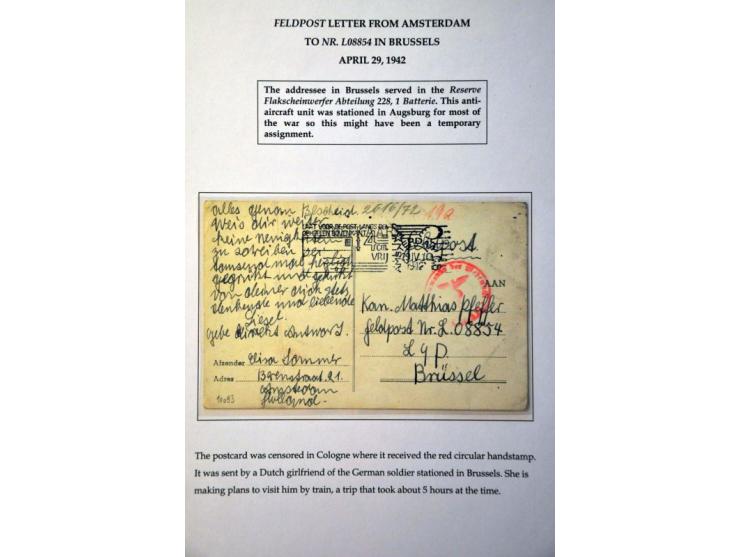 FELDPOST LETTER FROM AMSTERDAM
TO NR. L08854 IN BRUSSELS
APRIL 29, 1942
The addressee in Brussels served in the Reserve
Flakscheinwerfer Abteilung 228, 1 Batterie. This anti-
aircraft unit was stationed in Augsburg for most of
the war so this might have been a temporary
assignment.
alles genom
weis dir weiter
keine neuigkeiten
zu schreiben
gegrüßt und geküßt
von deiner dich stets
denkende und liebende
Liesel.
gebe direkt antwort.
Afzender Elisa Sommer
Adres Berenstraat 21.
Amsterdam
Holland.
2616/72
19a
Feldpost.
AAN
Kan. Matthias Pfeffer
feldpost Nr. L. 08854
L g p.
Brüssel
The postcard was censored in Cologne where it received the red circular handstamp.
It was sent by a Dutch girlfriend of the German soldier stationed in Brussels. She is
making plans to visit him by train, a trip that took about 5 hours at the time.